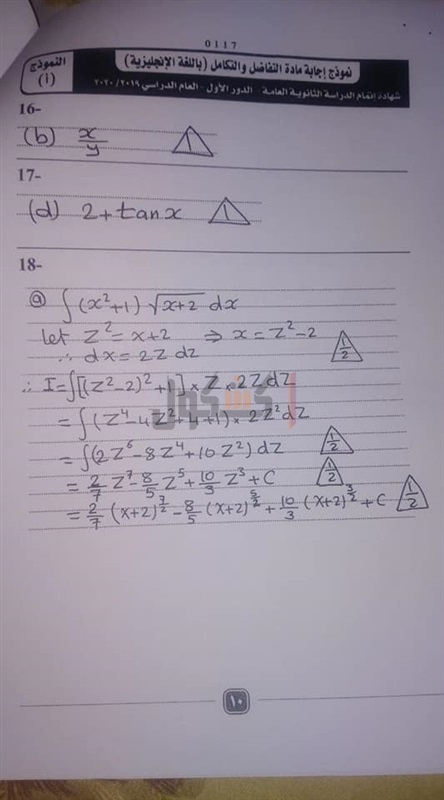 0117
نموذج إجابة مادة التفاضل والتكامل (باللغة الإنجليزية)
النموذج
(أ)
شهادة إتمام الدراسة الثانوية العامة - الدور الأول - العام الدراسي ٢٠١٩/٢٠٢٠
16-
(b) x/y 1
17-
(d) 2+tanx 1
18-
ⓐ ∫(x²+1) √(x+2) dx
let Z² = x+2 ⇒ x = Z²-2 1/2
∴ dx = 2Z dZ
∴ I = ∫[(Z²-2)²+1] × Z × 2Z dZ
= ∫(Z⁴-4Z²+4+1) × 2Z² dZ
= ∫(2Z⁶-8Z⁴+10Z²) dZ 1/2
= 2/7 Z⁷ - 8/5 Z⁵ + 10/3 Z³ + C 1/2
= 2/7 (x+2)^7/2 - 8/5 (x+2)^5/2 + 10/3 (x+2)^3/2 + C 1/2
كشكول
١٠